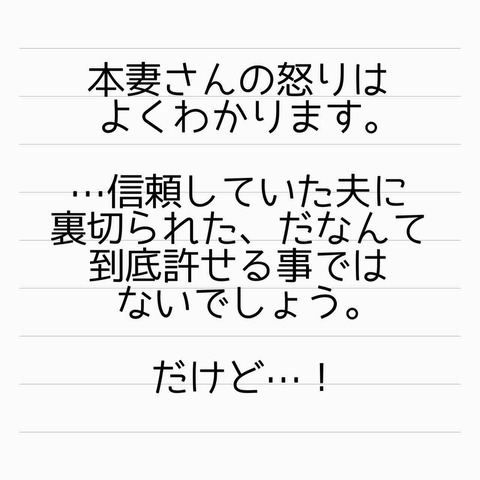 本妻さんの怒りは
よくわかります。
…信頼していた夫に
裏切られた、だなんて
到底許せる事では
ないでしょう。
だけど…！